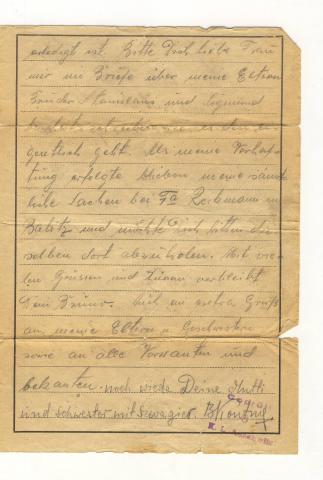 erledigt ist. Bitte Dich liebe Frau
mir im Briefe über meine Eltern
Brüder Stanislaus und Sigmund
gentlich geht. Als meine Verhaf-
tung erfolgte blieben meine sämt-
liche Sachen bei Fa
und möchte Dich bitten die-
selben dort abzuholen. Mit vie-
len Grüssen und Küssen verbleibt
Dein Bruno. Auch en extra Gruss
an meine Eltern u Geschwister
sowie an alle Verwanten und
bekanten noch wieda Deine Mutti
und schwester mit